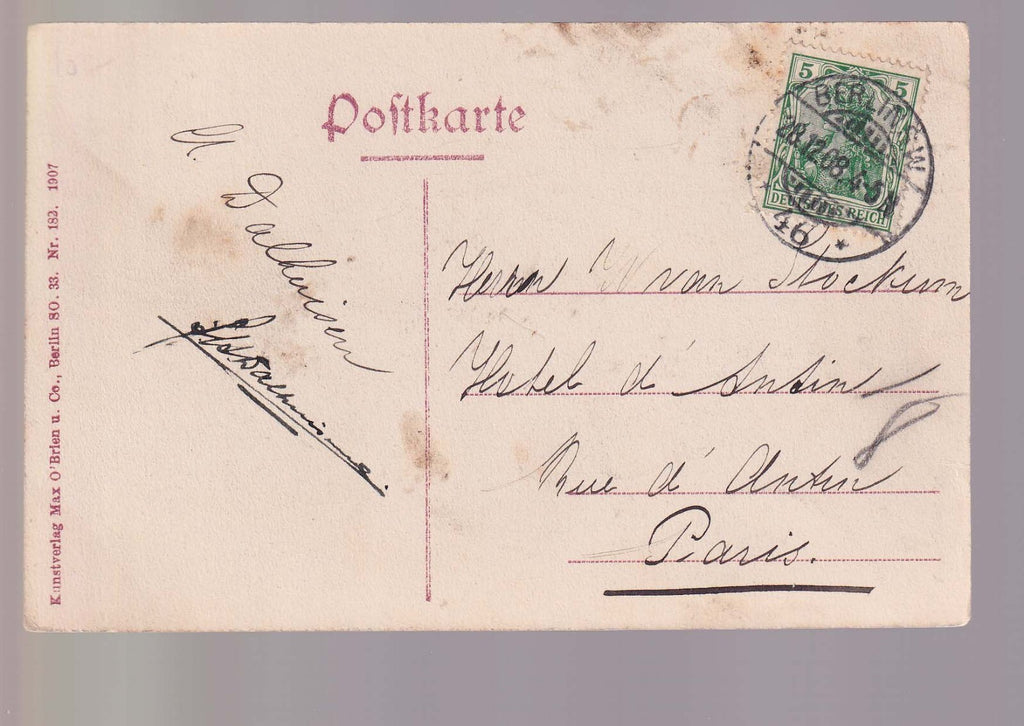 Postkarte
5 5
DEUTSCHES REICH
BERLIN S.W.
28.12.08. 4-5 N
46
Dalhuisen
Herrn W van Stockum
Hotel d'Antin
Rue d'Antin
Paris.
8
Kunstverlag Max O'Brien u. Co., Berlin SO. 33. Nr. 182. 1907